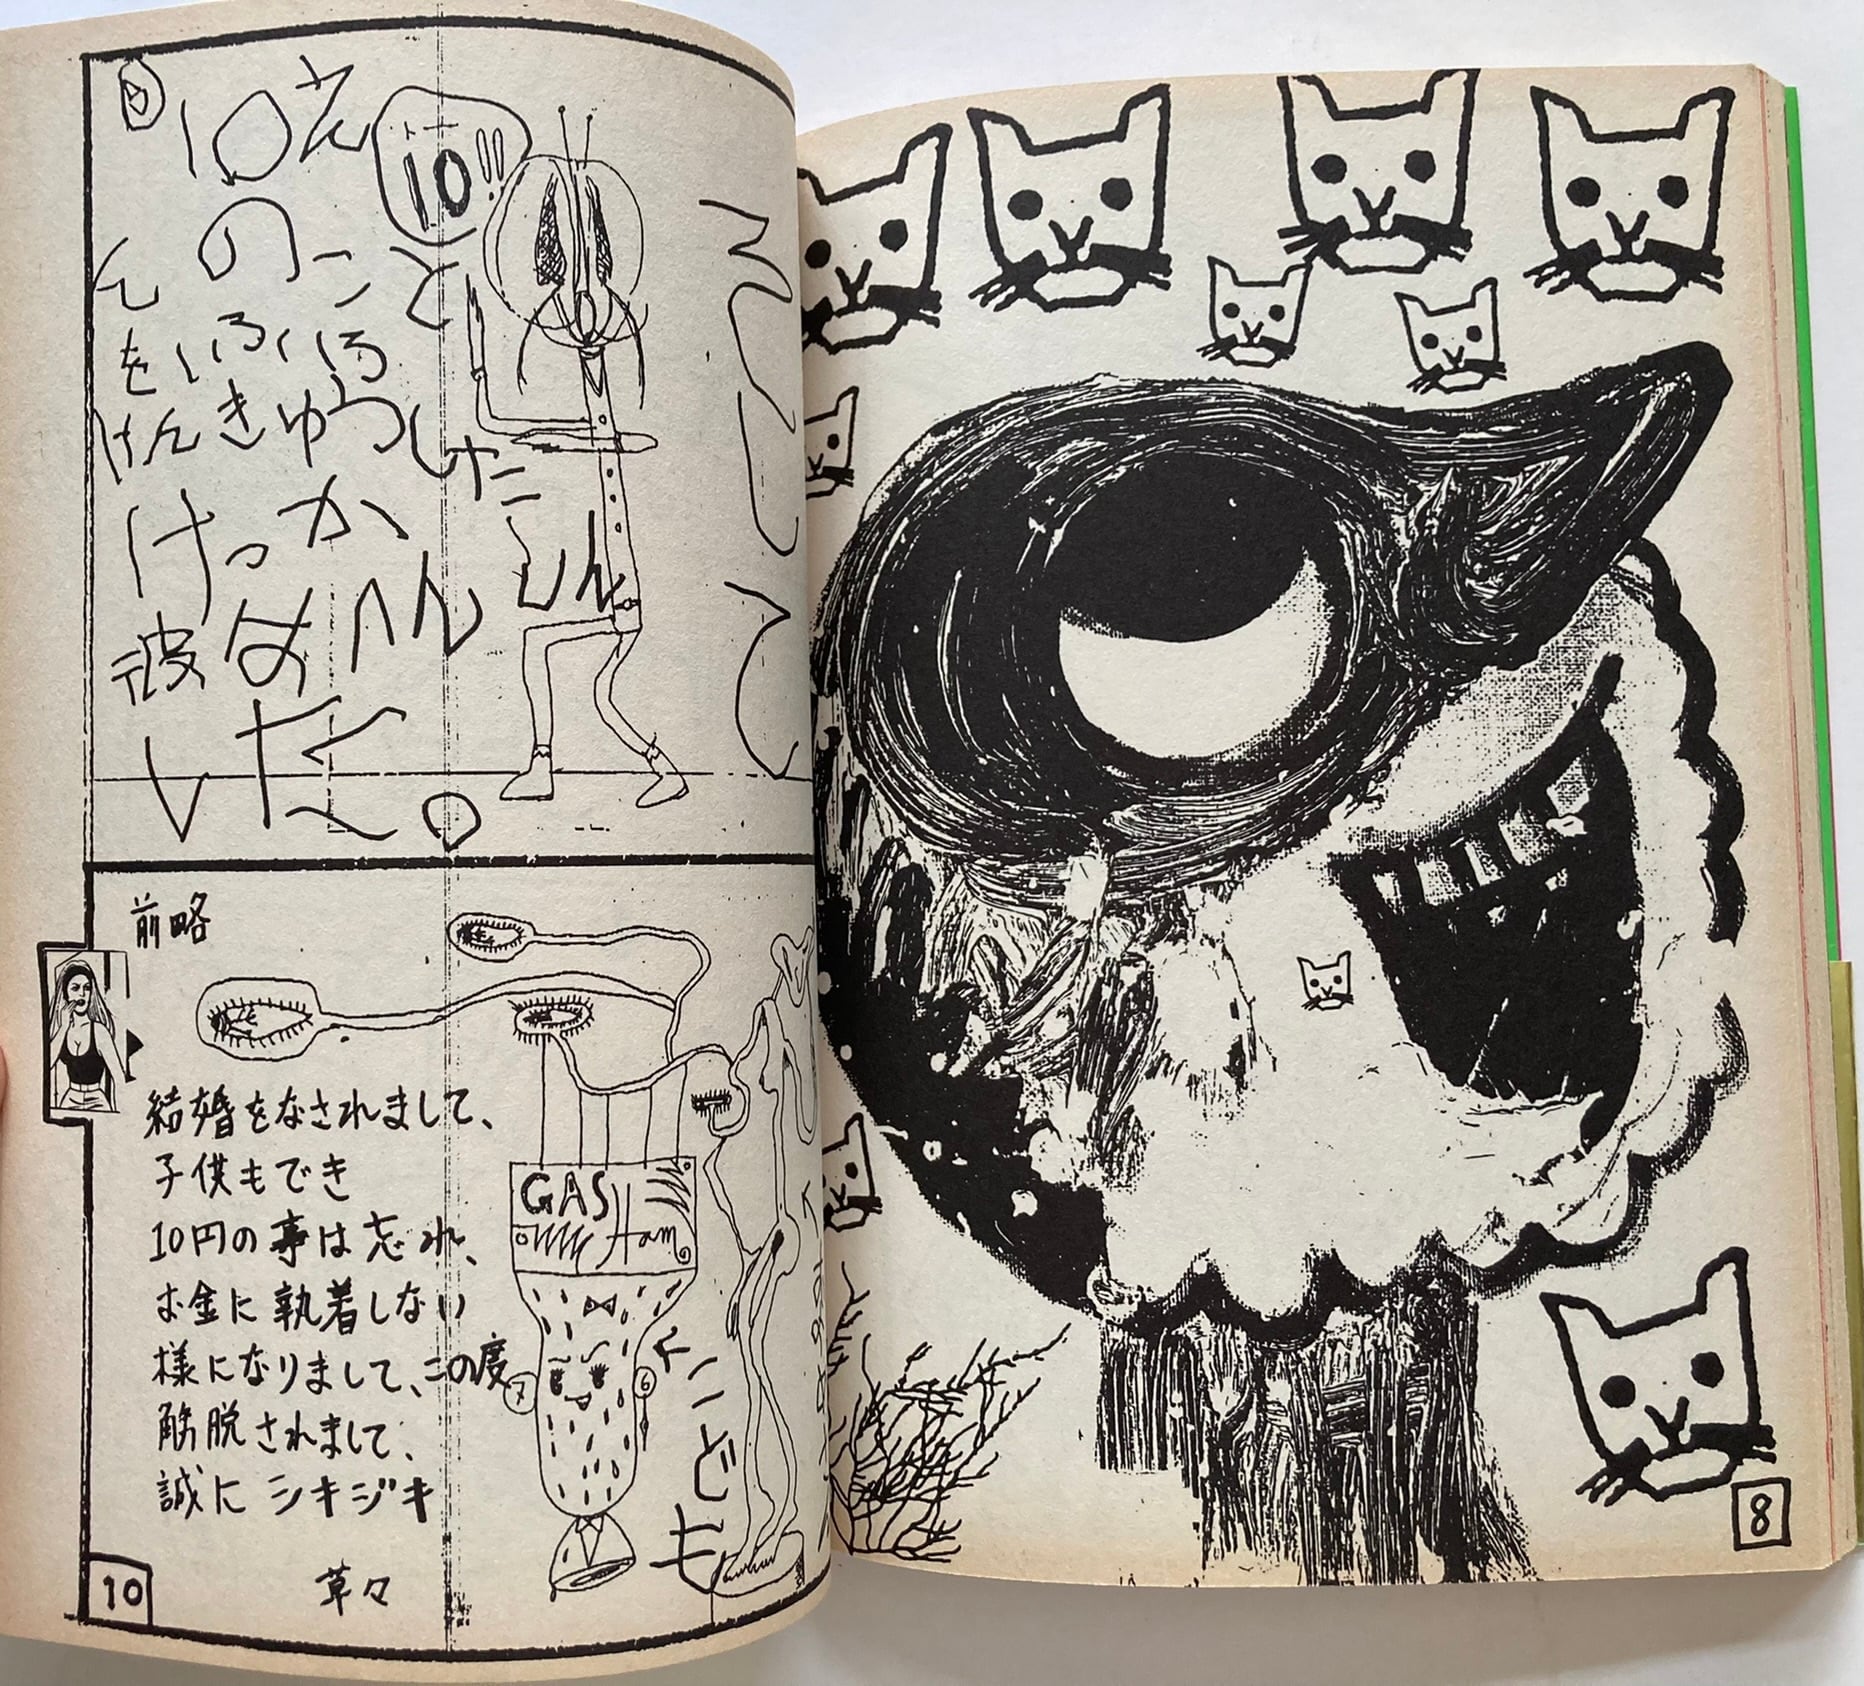 そして
10え
10!!
んの こと
をいろいろ
けんきゅうした
けっか
彼は へんしん
前略
結婚をなされまして、
子供もでき
10円の事は忘れ、
お金に執着しない
様になりまして、この度
解脱されまして、
誠に シキジキ
草々
GAS
Ham
7
6
こども
10
8